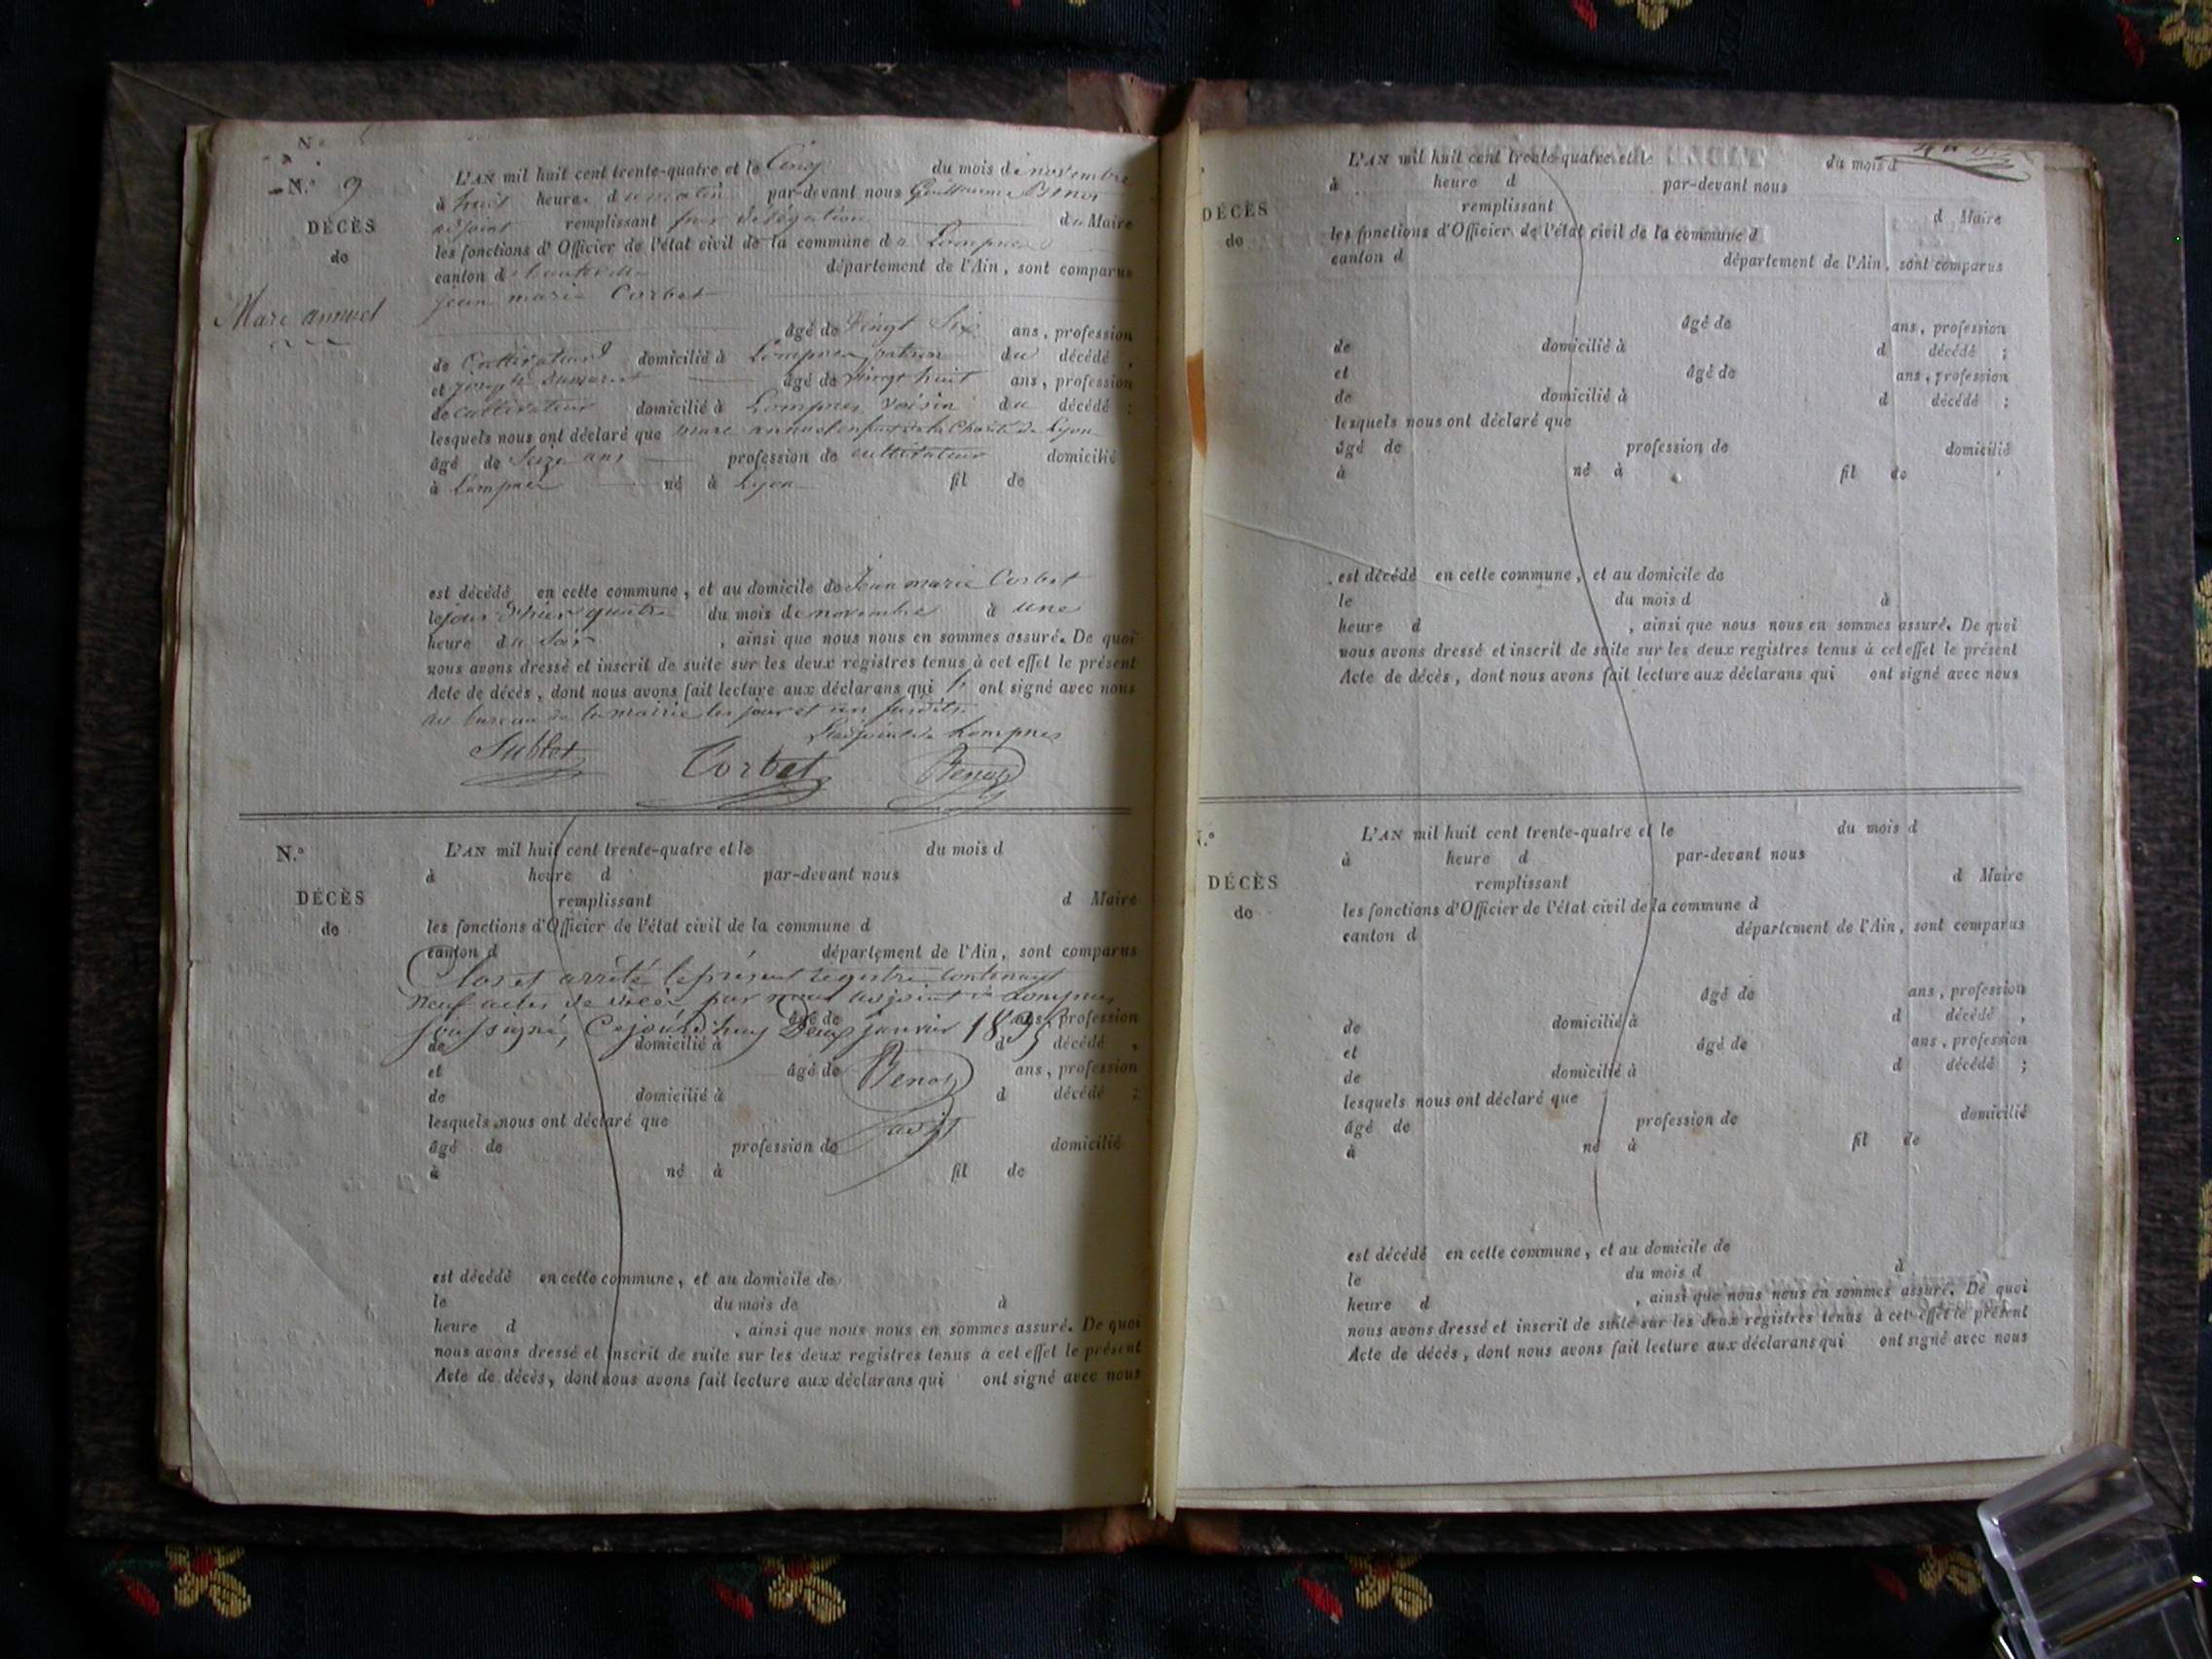 N.
N.° 9
DÉCÈS
de
Marc annuel
L'AN mil huit cent trente-quatre et le Cinq du mois de novembre
à huit heures du matin par-devant nous Guillaume Benoz
adjoint remplissant par délégation du Maire
les fonctions d'Officier de l'état civil de la commune de Lompnes
canton d'hauteville département de l'Ain, sont comparus
jean marie Corbet
âgé de Vingt Six ans, profession
de Cultivateur domicilié à Lompnes, patron du décédé,
et joseph âgé de Vingt huit ans, profession
de cultivateur domicilié à Lompnes voisin du décédé;
lesquels nous ont déclaré que marc annuel enfant de la Charité de Lyon
âgé de Seize ans profession de cultivateur domicilié
à Lompnes né à Lyon fil de
est décédé en cette commune, et au domicile de Jean marie Corbet
le jour d'hier quatre du mois de novembre à une
heure du Soir, ainsi que nous nous en sommes assuré. De quoi
nous avons dressé et inscrit de suite sur les deux registres tenus à cet effet le présent
Acte de décès, dont nous avons fait lecture aux déclarans qui ont signé avec nous
au bureau de la mairie les jour et an susdits.
L'adjoint de Lompnes
Sublet Corbet Benoz
N.°
DÉCÈS
de
L'AN mil huit cent trente-quatre et le du mois d
à heure d par-devant nous
remplissant d Maire
les fonctions d'Officier de l'état civil de la commune d
canton d département de l'Ain, sont comparus
Clos et arrêté le présent registre contenant
neuf actes de décès par nous adjoint de Lompnes
soussigné, Cejourd'huy Deux janvier 1835
âgé de ans, profession
de domicilié à d décédé,
et âgé de ans, profession
Benoz
de domicilié à d décédé;
lesquels nous ont déclaré que
adjt
âgé de profession de domicilié
à né à fil de
est décédé en cette commune, et au domicile de
le du mois de à
heure d, ainsi que nous nous en sommes assuré. De quoi
nous avons dressé et inscrit de suite sur les deux registres tenus à cet effet le présent
Acte de décès, dont nous avons fait lecture aux déclarans qui ont signé avec nous
DÉCÈS
de
L'AN mil huit cent trente-quatre et le du mois d
à heure d par-devant nous
remplissant d Maire
les fonctions d'Officier de l'état civil de la commune d
canton d département de l'Ain, sont comparus
âgé de ans, profession
de domicilié à d décédé;
et âgé de ans, profession
de domicilié à d décédé;
lesquels nous ont déclaré que
âgé de profession de domicilié
à né à fil de
est décédé en cette commune, et au domicile de
le du mois d à
heure d, ainsi que nous nous en sommes assuré. De quoi
nous avons dressé et inscrit de suite sur les deux registres tenus à cet effet le présent
Acte de décès, dont nous avons fait lecture aux déclarans qui ont signé avec nous
N.°
DÉCÈS
de
L'AN mil huit cent trente-quatre et le du mois d
à heure d par-devant nous
remplissant d Maire
les fonctions d'Officier de l'état civil de la commune d
canton d département de l'Ain, sont comparus
âgé de ans, profession
de domicilié à d décédé,
et âgé de ans, profession
de domicilié à d décédé;
lesquels nous ont déclaré que
âgé de profession de domicilié
à né à fil de
est décédé en cette commune, et au domicile de
le du mois d à
heure d, ainsi que nous nous en sommes assuré. De quoi
nous avons dressé et inscrit de suite sur les deux registres tenus à cet effet le présent
Acte de décès, dont nous avons fait lecture aux déclarans qui ont signé avec nous